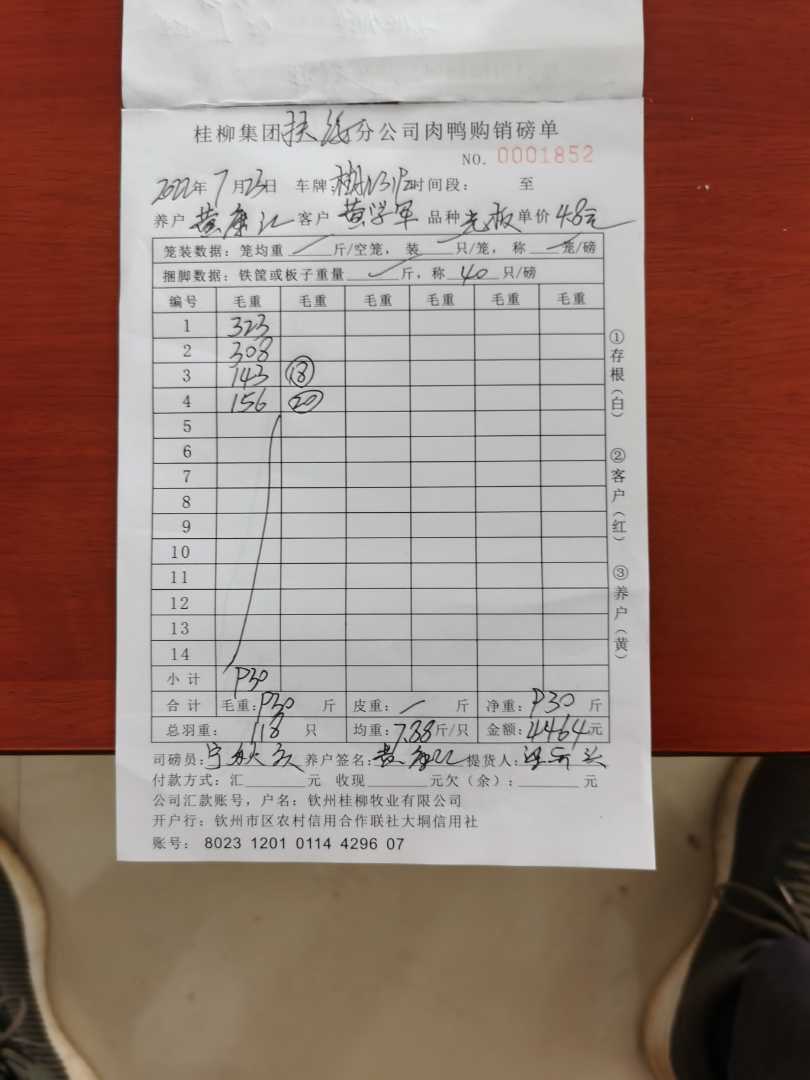 桂柳集团扶绥分公司肉鸭购销磅单
NO. 0001852
2022年7月23日 车牌: 时间段: 至
养户 黄康江 客户 黄学军 品种 光板 单价 4.8元
笼装数据: 笼均重 斤/空笼, 装 只/笼, 称 笼/磅
捆脚数据: 铁筐或板子重量 斤, 称 40 只/磅
编号 毛重 毛重 毛重 毛重 毛重 毛重
1 323
2 308
3 143 18
4 156 20
5
6
7
8
9
10
11
12
13
14
小计 930
合计 毛重: 930 斤 皮重: 斤 净重: 930 斤
总羽重: 118 只 均重: 7.88 斤/只 金额: 4464 元
司磅员: 养户签名: 黄康江 提货人:
付款方式: 汇 元 收现 元欠(余): 元
公司汇款账号, 户名: 钦州桂柳牧业有限公司
开户行: 钦州市区农村信用合作联社大垌信用社
账号: 8023 1201 0114 4296 07
①存根(白)
②客户(红)
③养户(黄)